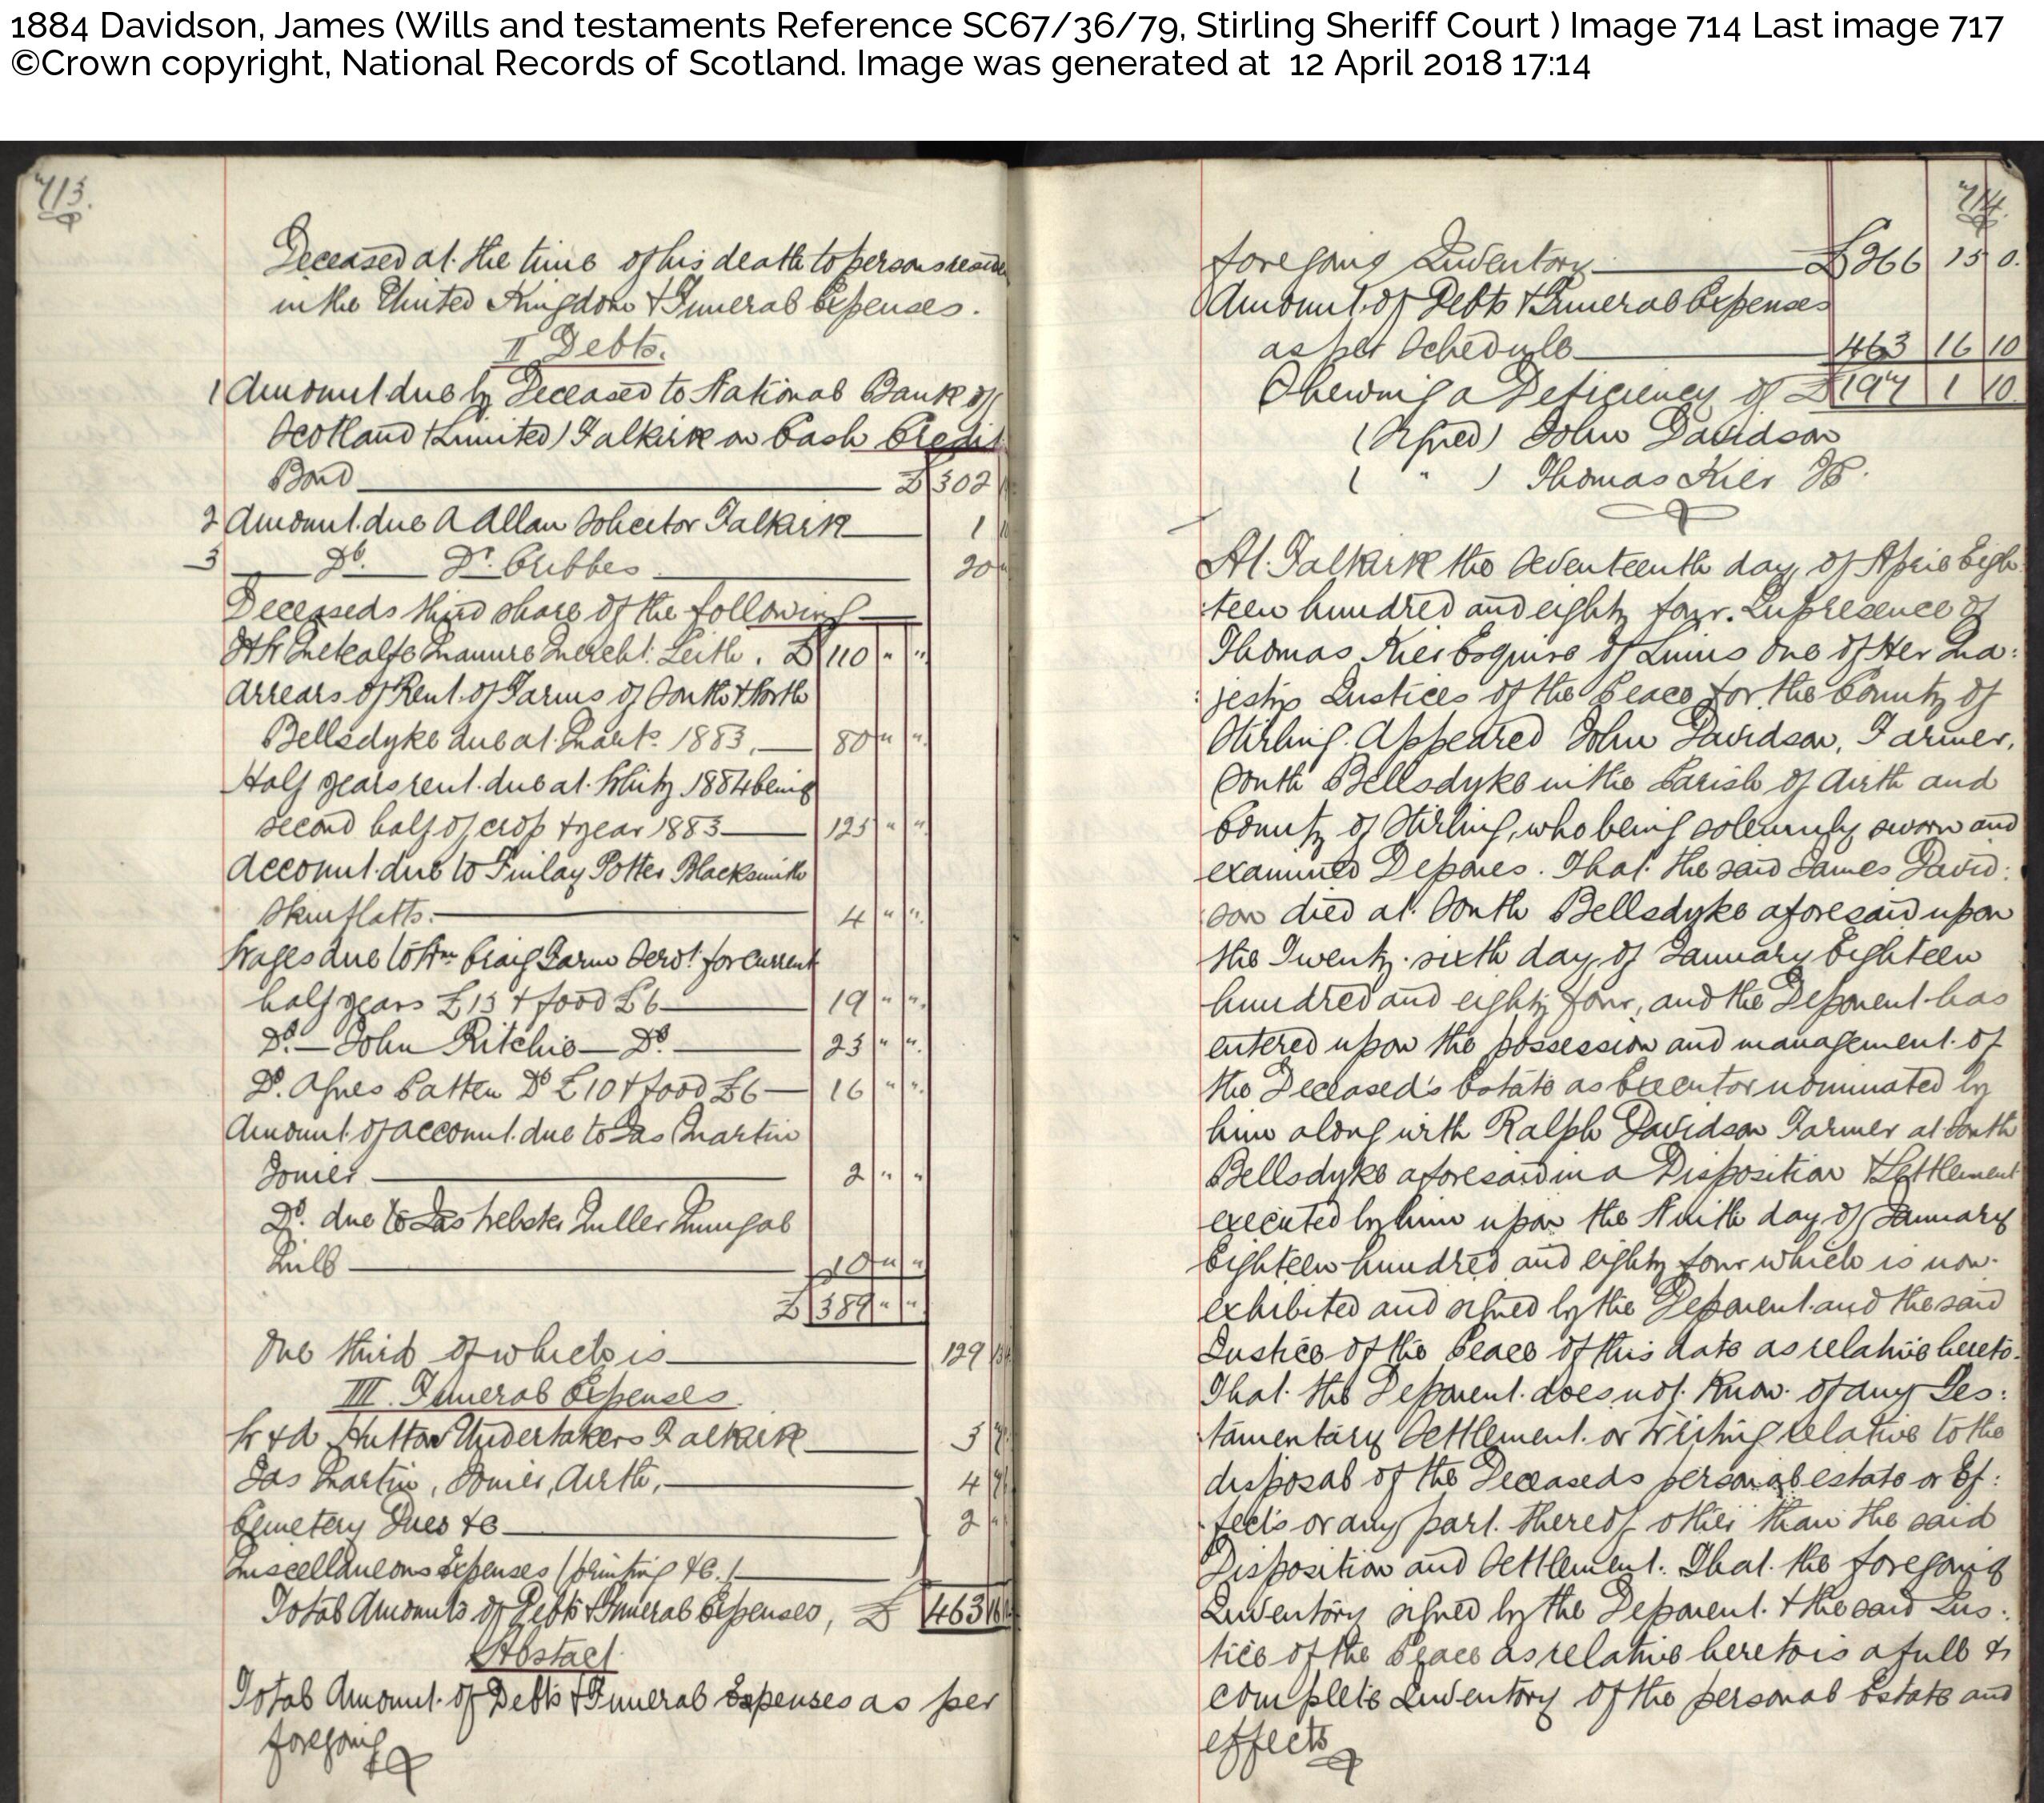 1884 Davidson, James (Wills and testaments Reference SC67/36/79, Stirling Sheriff Court ) Image 714 Last image 717
©Crown copyright, National Records of Scotland. Image was generated at 12 April 2018 17:14
713.
Deceased at the time of his death to persons
in the United Kingdom & Funeral Expenses.
II Debts.
1 Amount due by Deceased to National Bank of
Scotland (Limited) Falkirk on Cash Credit
Bond £ 302
2 Amount due A Allan Solicitor Falkirk 1
3 Do. Dr. Cribbes 20
Deceaseds third share of the following
Metcalfe Manure Mercht. Leith. £ 110 " "
Arrears of Rent of Farms of South & North
Bellsdyke due at Marts. 1883, 80 " "
Half years rent due at Whity 1884 being
second half of crop & year 1883 125 " "
Account due to Finlay Potter Blacksmith
Skinflatts. 4 " "
Wages due to Wm Craig Farm Servt. for current
half years £13 & food £6 19 " "
Do. John Ritchie Do. 23 " "
Do. Agnes Patten Do £10 & food £6 16 " "
Amount of account due to Jas Martin
Joiner 2 " "
Do. due to Jas Webster Miller Mungal
Mill 10 " "
£ 389 " "
One third of which is 129
III. Funeral Expenses.
W & A Hutton Undertakers Falkirk 3
Jas Martin, Joiner, Airth, 4
Cemetery Dues &c 2
Miscellaneous Expenses (printing &c.)
Total Amounts of Debts & Funeral Expenses, £ 463
Abstact
Total Amount of Debts & Funeral Expenses as per
foregoing
714.
foregoing Inventory £266 15 0.
Amount of Debts & Funeral Expenses
as per Schedule 463 16 10
Shewing a Deficiency of £197 1 10.
(Signed) John Davidson
( " ) Thomas Kier JP.
At Falkirk the Seventeenth day of April Eigh-
teen hundred and eighty four. In presence of
Thomas Kier Esquire of one of Her Ma:
:jestys Justices of the Peace for the County of
Stirling. Appeared John Davidson, Farmer,
South Bellsdyke in the Parish of Airth and
County of Stirling, who being solemnly sworn and
examined Depones. That the said James David:
son died at South Bellsdyke aforesaid upon
the Twenty-sixth day of January Eighteen
hundred and eighty four, and the Deponent has
entered upon the possession and management of
the Deceased's Estate as Executor nominated by
him along with Ralph Davidson Farmer at South
Bellsdyke aforesaid in a Disposition & Settlement
executed by him upon the Ninth day of January
Eighteen hundred and eighty four which is now
exhibited and signed by the Deponent and the said
Justice of the Peace of this date as relative hereto.
That the Deponent does not know of any Tes:
tamentary Settlement or Writing relative to the
disposal of the Deceaseds personal estate or Ef:
fects or any part thereof other than the said
Disposition and Settlement. That the foregoing
Inventory signed by the Deponent & the said Jus:
tice of the Peace as relative hereto is a full &
complete Inventory of the personal Estate and
effects